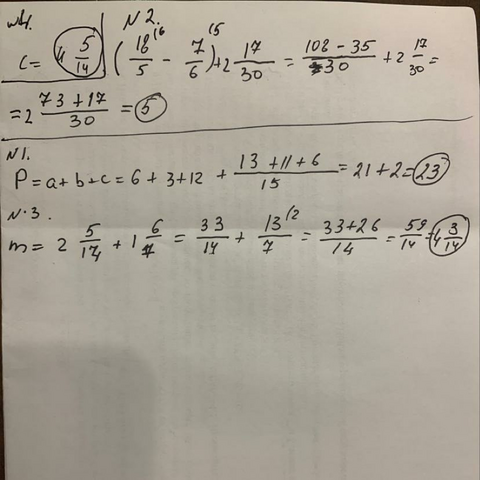 №4.
c = 4 5/14
№2.
(18/5 - 7/6) + 2 17/30 = (108 - 35)/30 + 2 17/30 =
= 2 (73 + 17)/30 = 5
№1.
P = a + b + c = 6 + 3 + 12 + (13 + 11 + 6)/15 = 21 + 2 = 23
№3.
m = 2 5/14 + 1 6/7 = 33/14 + 13/7 = (33 + 26)/14 = 59/14 = 4 3/14